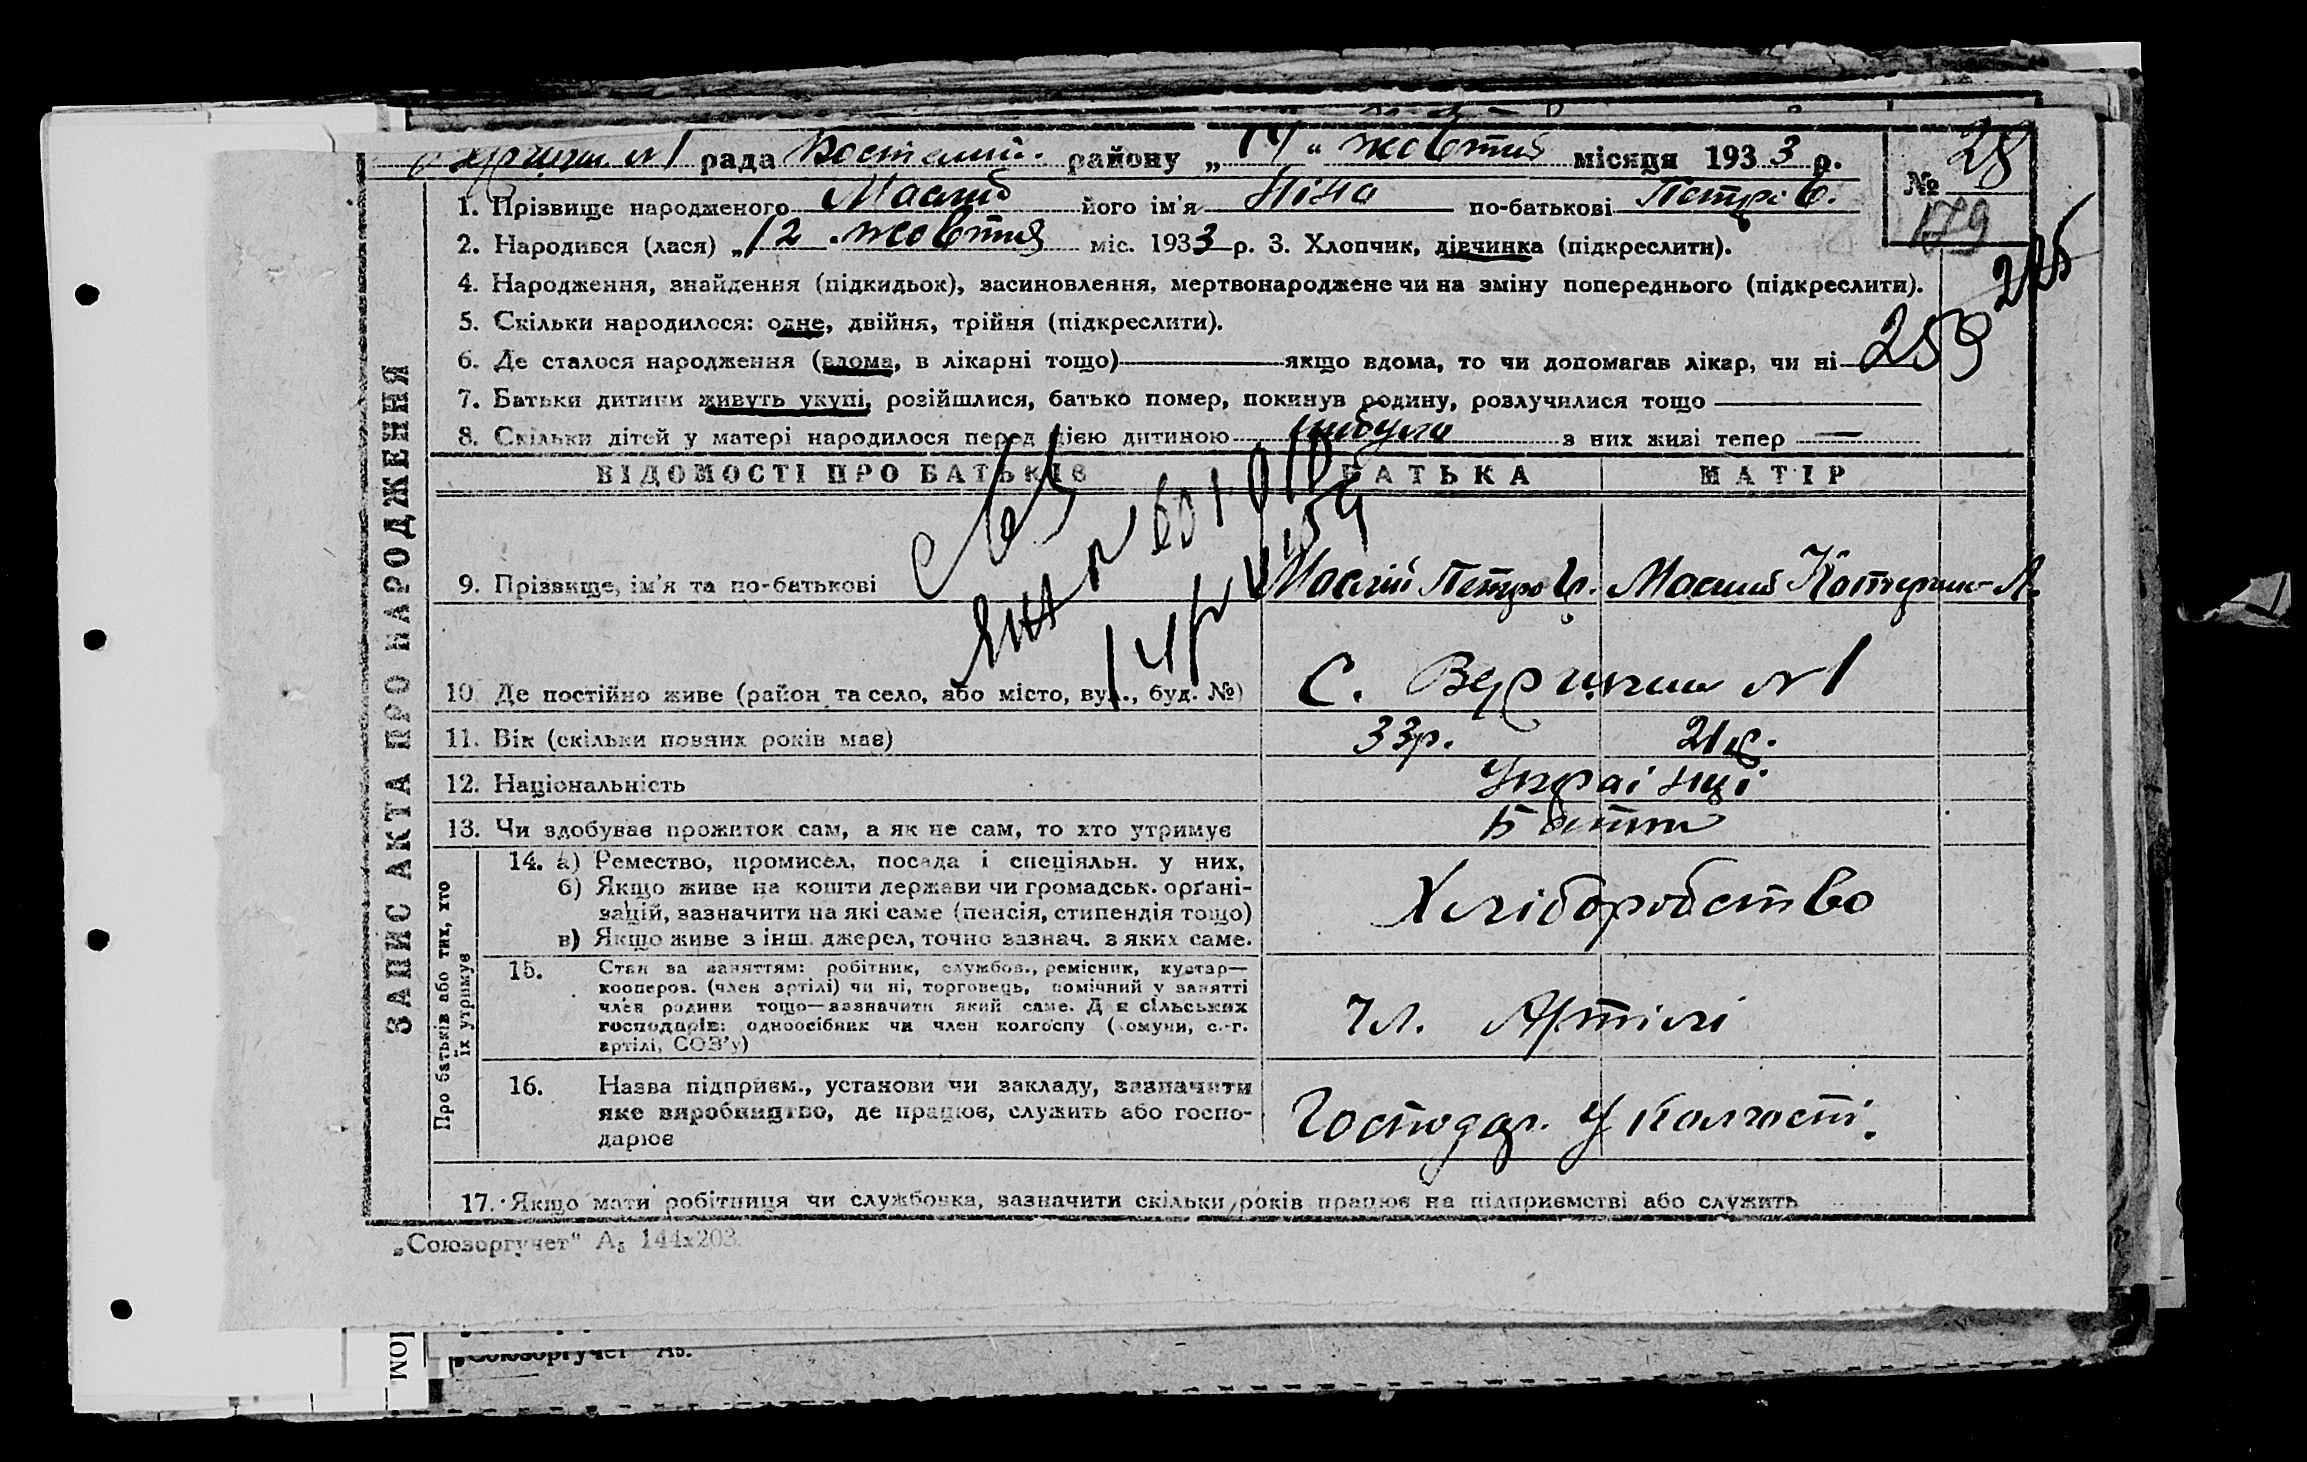 рада района „14“ жовтня місяця 1933 р.
№ 28
179
1. Прізвище народженого Маслій його ім'я Ніна по-батькові Петрів.
2. Народився (лася) „12 жовтня міс. 1933 р. 3. Хлопчик, дівчинка (підкреслити).
225
4. Народження, знайдення (підкидьок), засиновлення, мертвонароджене чи на зміну попереднього (підкреслити).
5. Скільки народилося: одне, двійня, трійня (підкреслити).
6. Де сталося народження (вдома, в лікарні тощо) якщо вдома, то чи допомагав лікар, чи ні
259
7. Батьки дитини живуть укупі, розійшлися, батько помер, покинув родину, розлучилися тощо
8. Скільки дітей у матері народилося перед цією дитиною з них живі тепер —
ВІДОМОСТІ ПРО БАТЬКІВ БАТЬКА МАТІР
9. Прізвище, ім'я та по-батькові Маслій Петро Маслій Катерина
10. Де постійно живе (район та село, або місто, вул., буд. №) С. №1
11. Вік (скільки повних років має) 33р. 21р.
12. Національність Українці
13. Чи здобуває прожиток сам, а як не сам, то хто утримує
14. а) Ремество, промисел, посада і спеціяльн. у них,
б) Якщо живе на кошти держави чи громадськ. орґані-
зацій, зазначити на які саме (пенсія, стипендія тощо)
в) Якщо живе з інш. джерел, точно зазнач. з яких саме.
Хліборобство
15. Стан за заняттям: робітник, службов., ремісник, кустар—
кооперов. (член артілі) чи ні, торговець, помічний у занятті
член родини тощо—зазначити який саме. Для сільських
господарів: одноосібник чи член колгоспу (комуни, с.-г.
артілі, СОЗ'у)
Чл. Артілі
16. Назва підприєм., установи чи закладу, зазначити
яке виробництво, де працює, служить або госпо-
дарює
Господар. У колгоспі.
17. Якщо мати робітниця чи службовка, зазначити скільки років працює на підприємстві або служить
ЗАПИС АКТА ПРО НАРОДЖЕННЯ
Про батьків або тих, хто
їх утримує
„Союзоргучет“ А₅ 144х203.
„Союзоргучет“ А5.